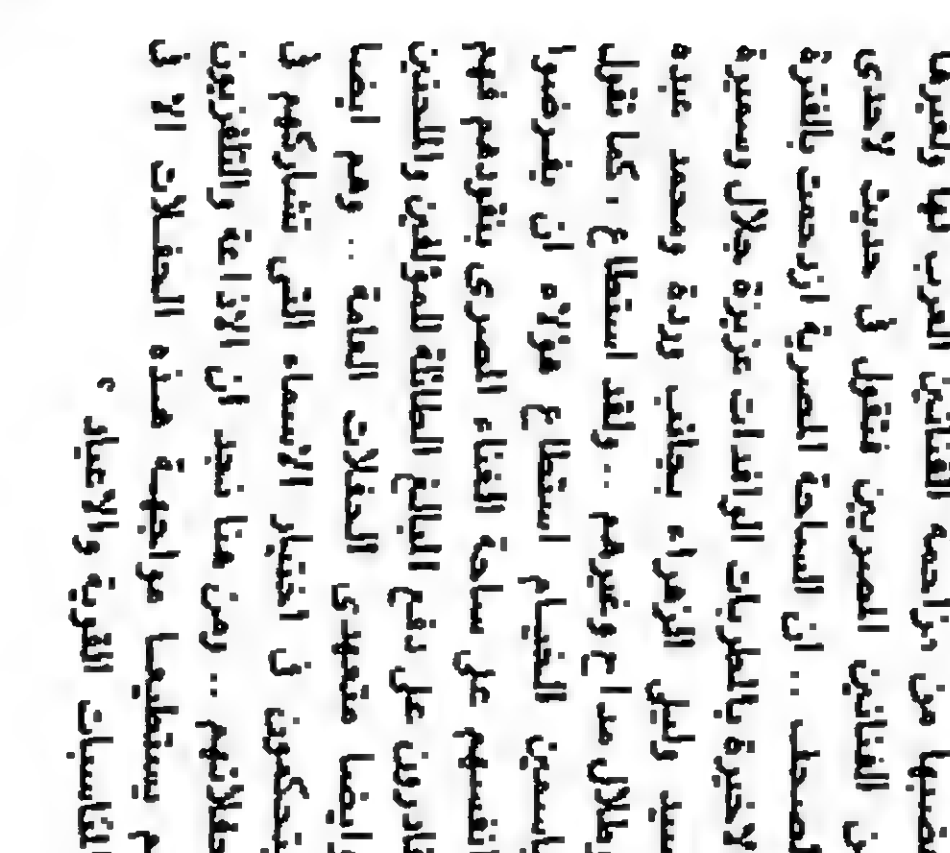 من مزاحمة الفنانين العرب لها
الفنانين المصريين فتقول فى حديث لاحدى
لصحف .. ان الساحة المصرية ازدحمت بالفترة
لاخيرة بالمطربات الوافدات عزيزة جلال وسميرة
سيد وليلى الزهراء بجانب وردة ومحمد عبده
طلال مداح وغيرهم .. ولقد استطاع ، كما تقول
ياسمين الخيام استطاع هؤلاء ان يفرضوا
انفسهم على ساحة الغناء المصرى بنقودهم فهم
قادرون على دفع المبالغ الطائلة للمؤلفين والملحنين
وايضا متعهدى الحفلات العامة .. وهم ايضا
يتحكمون فى اختيار الاسماء التى تشاركهم فى
حفلاتهم .. ومن هنا نجد ان الاذاعة والتلفزيون
لم يستطيعا مواجهة هذه الحفلات الا فى
المناسبات القومية والاعياد ؟